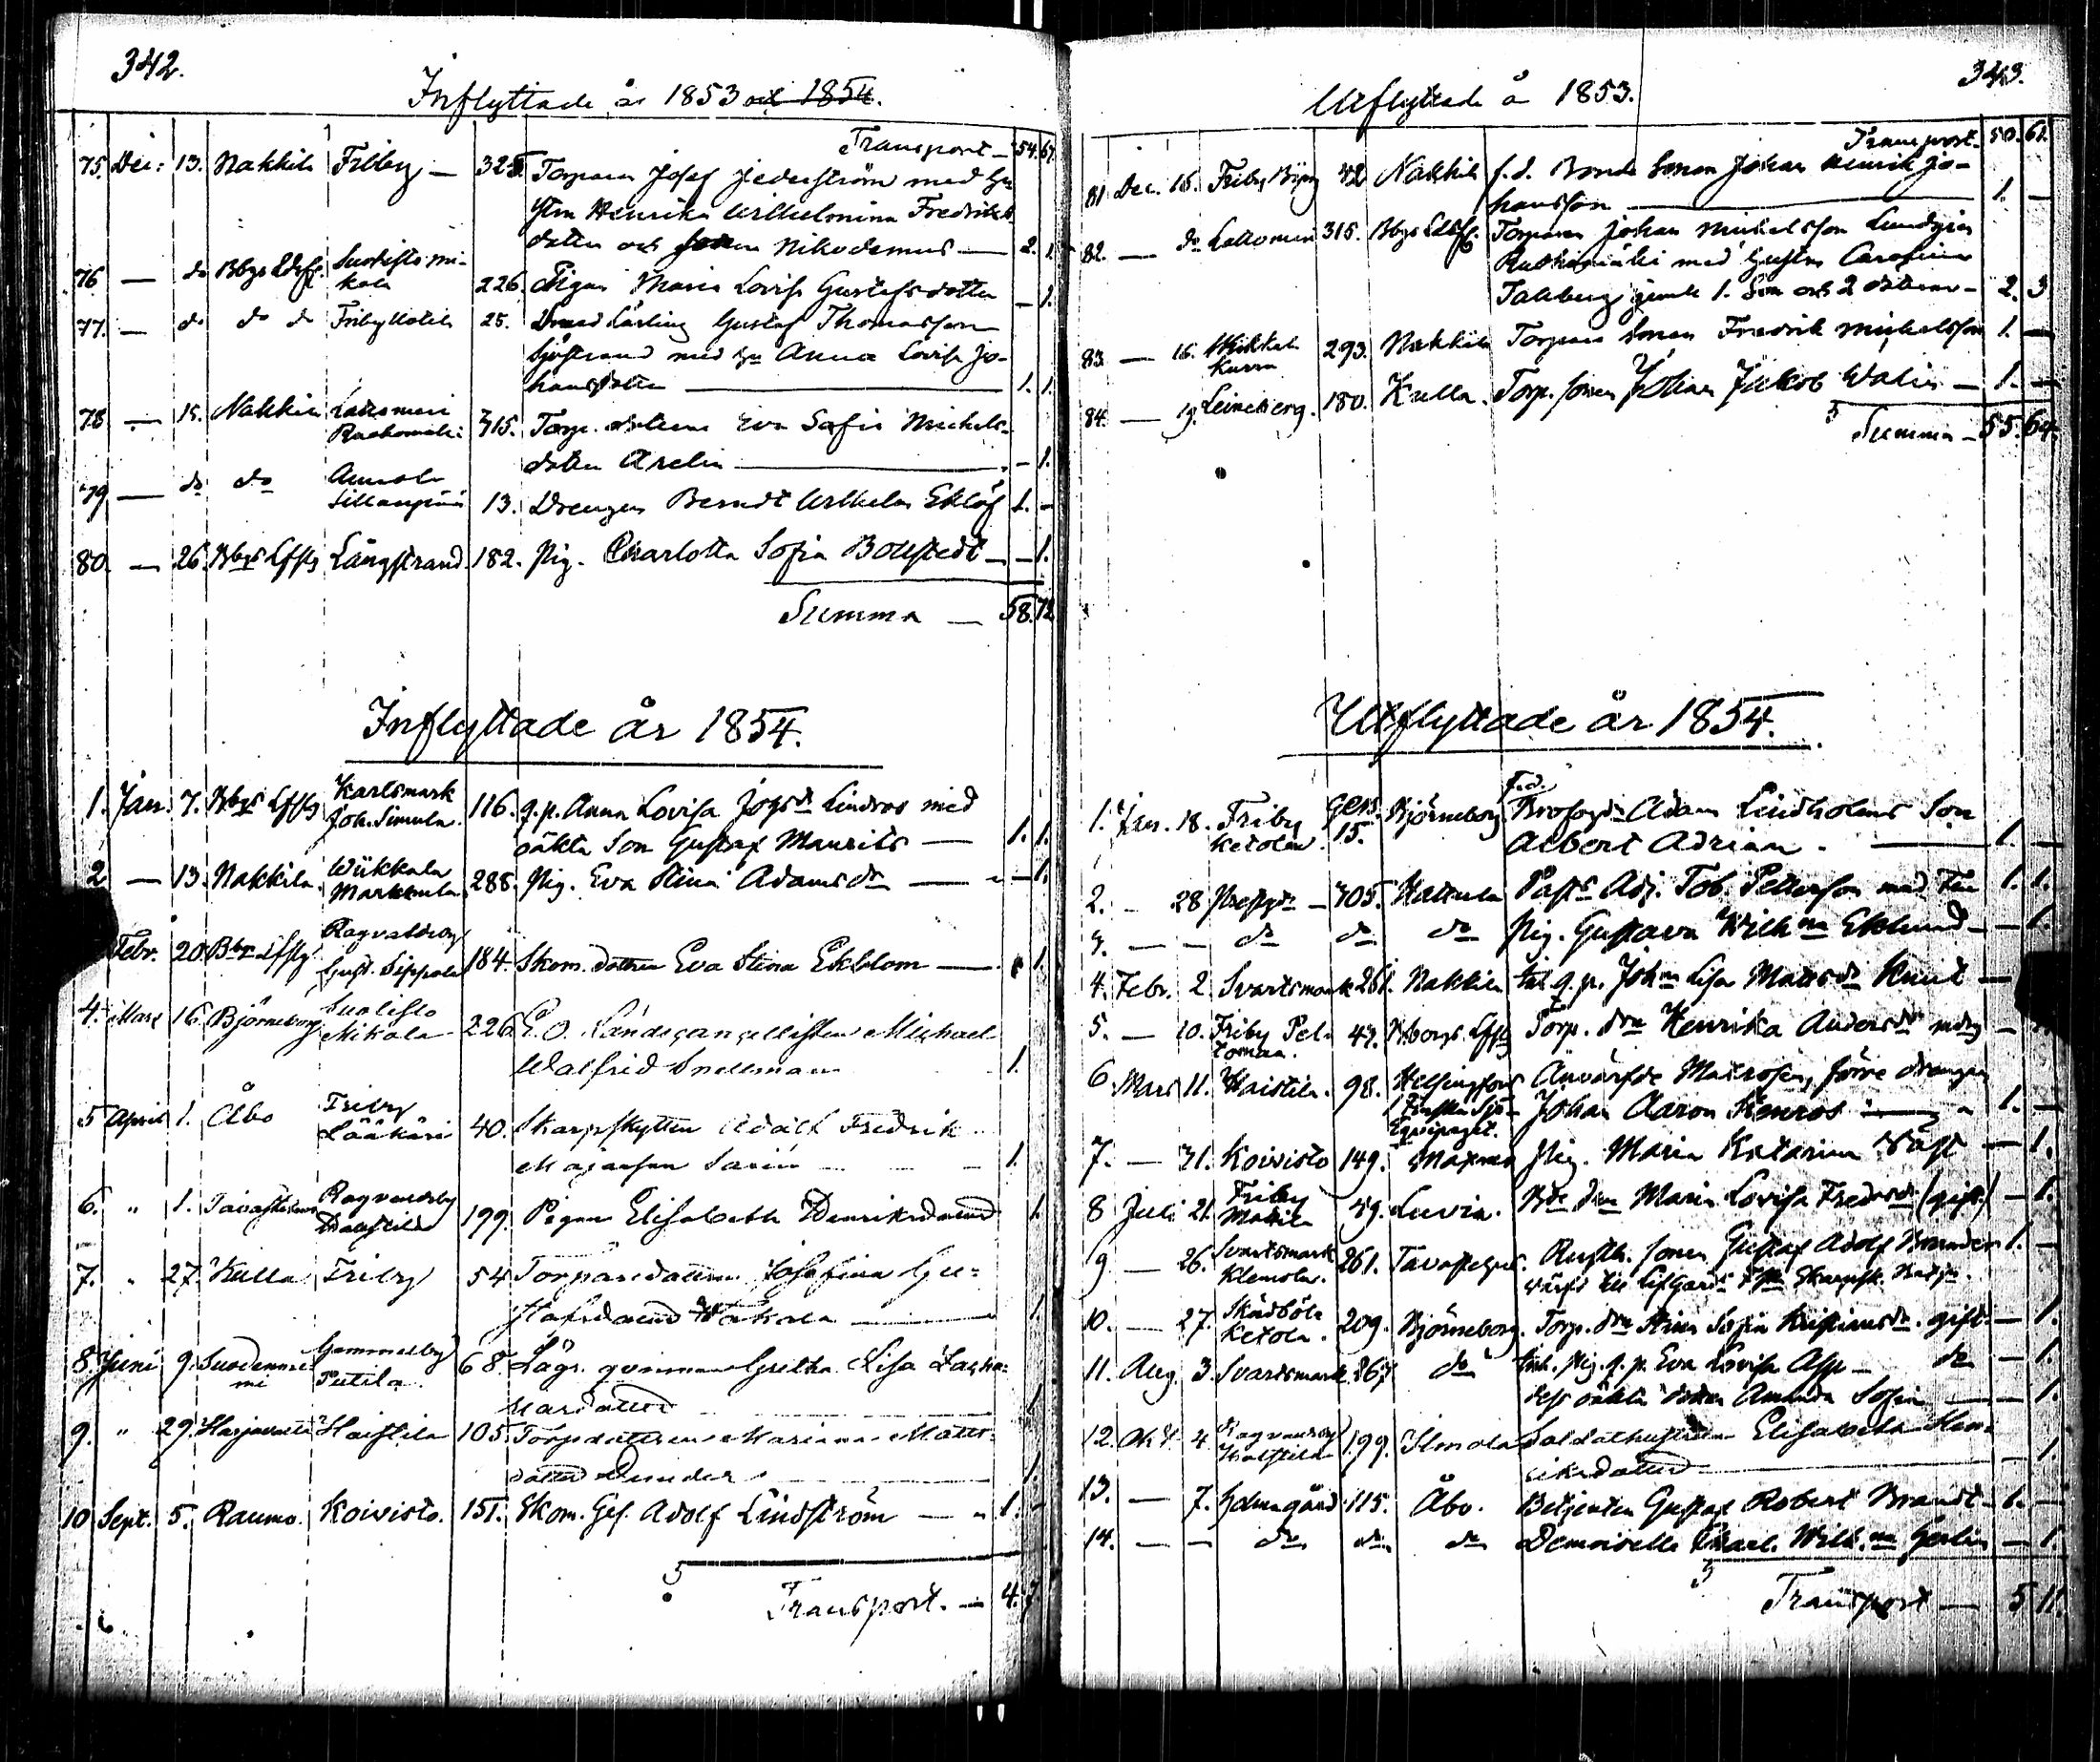 342.
Inflyttade år 1853 och 1854.
Transport — 54. 67.
75. Dec: 13. Nakkila Friby — 325. Torparen Josef Jederström med hu
stru Henrika Wilhelmina Fredriks
dotter och sonen Nikodemus — 2. 1.
76 — do Bbgs Ldsfg. Suosisto Mi-
kola 226. Pigan Maria Lovisa Gustafsdotter — 1.
77. — do do do Friby 25. Gustaf Thomasson
Sjöstrand med hu Anna Lovisa Jo-
hansdotter — 1. 1.
78 — 15. Nakkila Lattomeri
315. Torp. dottren Eva Sofia Michels-
dotter Arelin — — 1.
79 — do do Annola
Sillanpää 13. Drengen Berndt Wilhelm Eklöf 1. -
80. — 26. Bbgs Lffg Långstrand. 182. Pig. Charlotta Sofia Bollstedt — — 1.
Summa — 58. 72
Inflyttade år 1854.
1. Jan. 7. Bbgs Lffg Karlsmark
Joh. Simula. 116. q.p. Anna Lovisa Lindros med
oäkta Son Gustaf Maurits — 1. 1.
2 — 13. Nakkila. Wiikkala
Markkula 288. Pig. Eva Stina Adamsdr — — 1.
Febr. 20. Lffg Ragvaldsby
Gust. Sippola 184. Skom. dottren Eva Stina Ekblom — 1.
4. Mars 16. Björneborg Suosisto
Mikola 226. E.O. Landscancellisten Michael
Walfrid Snellman 1.
5 April 1. Åbo Friby
Lääkäri 40. Skarpskytten Adolf Fredrik
Sarin — 1.
6. " 1. Tavastehus Ragvaldsby
199. Pigan Elisabeth Henriksdotter 1.
7. " 27. Kulla Friby 54 Torparedottren Josefina Gu=
stafsdotter — 1.
8 Juni 9. Suodennie
mi Gammelby
Tutila. 68. Lösa=
1
9. " 29. Harjavalta Haistila 105. Torpdottren Maria Matts-
dotter Sunder 1.
10 Sept. 5. Raumo. Koivisto. 151. Skom. Ges. Adolf Lindström — " 1. -
5
Transport. — 4. 7.
343.
Utflyttade å 1853.
Transport. 50. 61.
81 Dec. 15. Friby 42 Nakkila f.d. Bonde Sonen Johan Henrik Jo-
hansson — 1. —
82. — do Lattomeri 315. Bbgs Ldsfg. Torparen Johan Michelsson Lundgren
med hustru Carolina
Tallberg jemte 1. Son och 2 döttrar — 2. 3
83. — 16. Wiikkala
293. Nakkila Torpare Sonen Fredrik Michelsson 1. —
84. — 19. Leineberg. 180. Kulla. Torp. Sonen Johan Jakob Walin — 1. —
5
Summa — 55. 64.
Utflyttade år 1854.
1. Jan. 18. Friby
Ketola. 15. Björneborg. F.d.
Adam Lindholms Son
Albert Adrian. — 1. —
2. - 28 Prestgn — 305. Hattula Past. Adj. Tob. Petterson med Fru 1. 1.
3. — — do do do Pig. Gustava Wilhna Eklund — — 1.
4. Febr. 2. Svartsmark 261. Nakkila Inh. q.p. Lisa Mattsdr Knut —
5. — 10. Friby Pel-
tomaa. 47. Bborgs Lffg Torp. drn Henrika Andersdr —
6. Mars 11. Haistila. 98. Helsingfors
Finska Sjö-
Equipaget. Anvärfde Matrosen, förre drengen
Johan Aaron Stenros — " 1. —
7. — 31. Koivisto 149. Maxmo Pig. Maria Katarina Wäst — 1.
8 Juli 21. Friby
Mattila 49. Luvia. Bde drn Maria Lovisa Fredrsdr. (gift.) — 1.
9 — 26. Svartsmark
Klemola. 261. Tavastehus. Rusth. sonen Gustaf Adolf Brander 1. —
10. — 27. Skadböle
Ketola. 209. Björneborg. Torp. drn Stina Sofia Kristiansdr. gift — 1.
11. Aug. 3. Svartsmark. 267 do Inh. Pig. q.p. Eva Lovisa Asp — do — 1.
dess oäkta dotter Amanda Sofia — — 1.
12. Okt. 4 Ragvaldsby
199. Ilmola Soldathustrun Elisabeth Hen-
riksdotter — 1.
13. — 7. Holmgård. 115. Åbo. Betjenten Gustaf Robert Brandt — 1. —
14. — — do do do Demoiselle Charl. Wilh.na — 1.
5
Transport — 5 11.